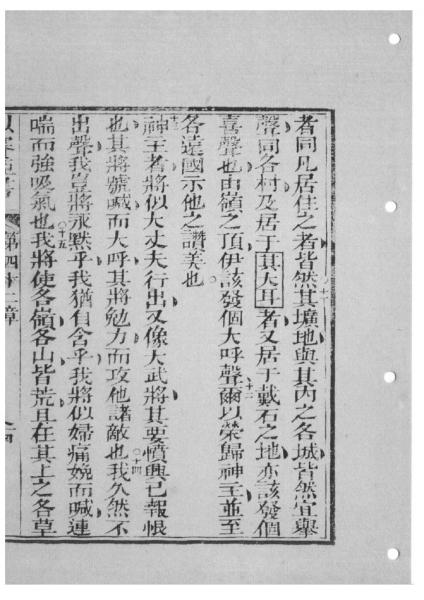 者同凡居住之者皆然其壙地與其內之各城皆然宜舉
聲同各村及居于其大耳者又居于戴石之地亦該發個
喜聲也由嶺之頂伊該發個大呼聲爾以榮歸神主並至
十二
各遠國示他之讚美也
十三
神主者將似大丈夫行出又像大武將其要憤興已報恨
也其將號喊而大呼其將勉力而攻他諸敵也我久然不
十四
出聲我豈將永默乎我猶自含乎我將似婦痛娩而喊連
喘而強吸氣也我將使各嶺各山皆荒且在其上之各草
十五
第四十二章